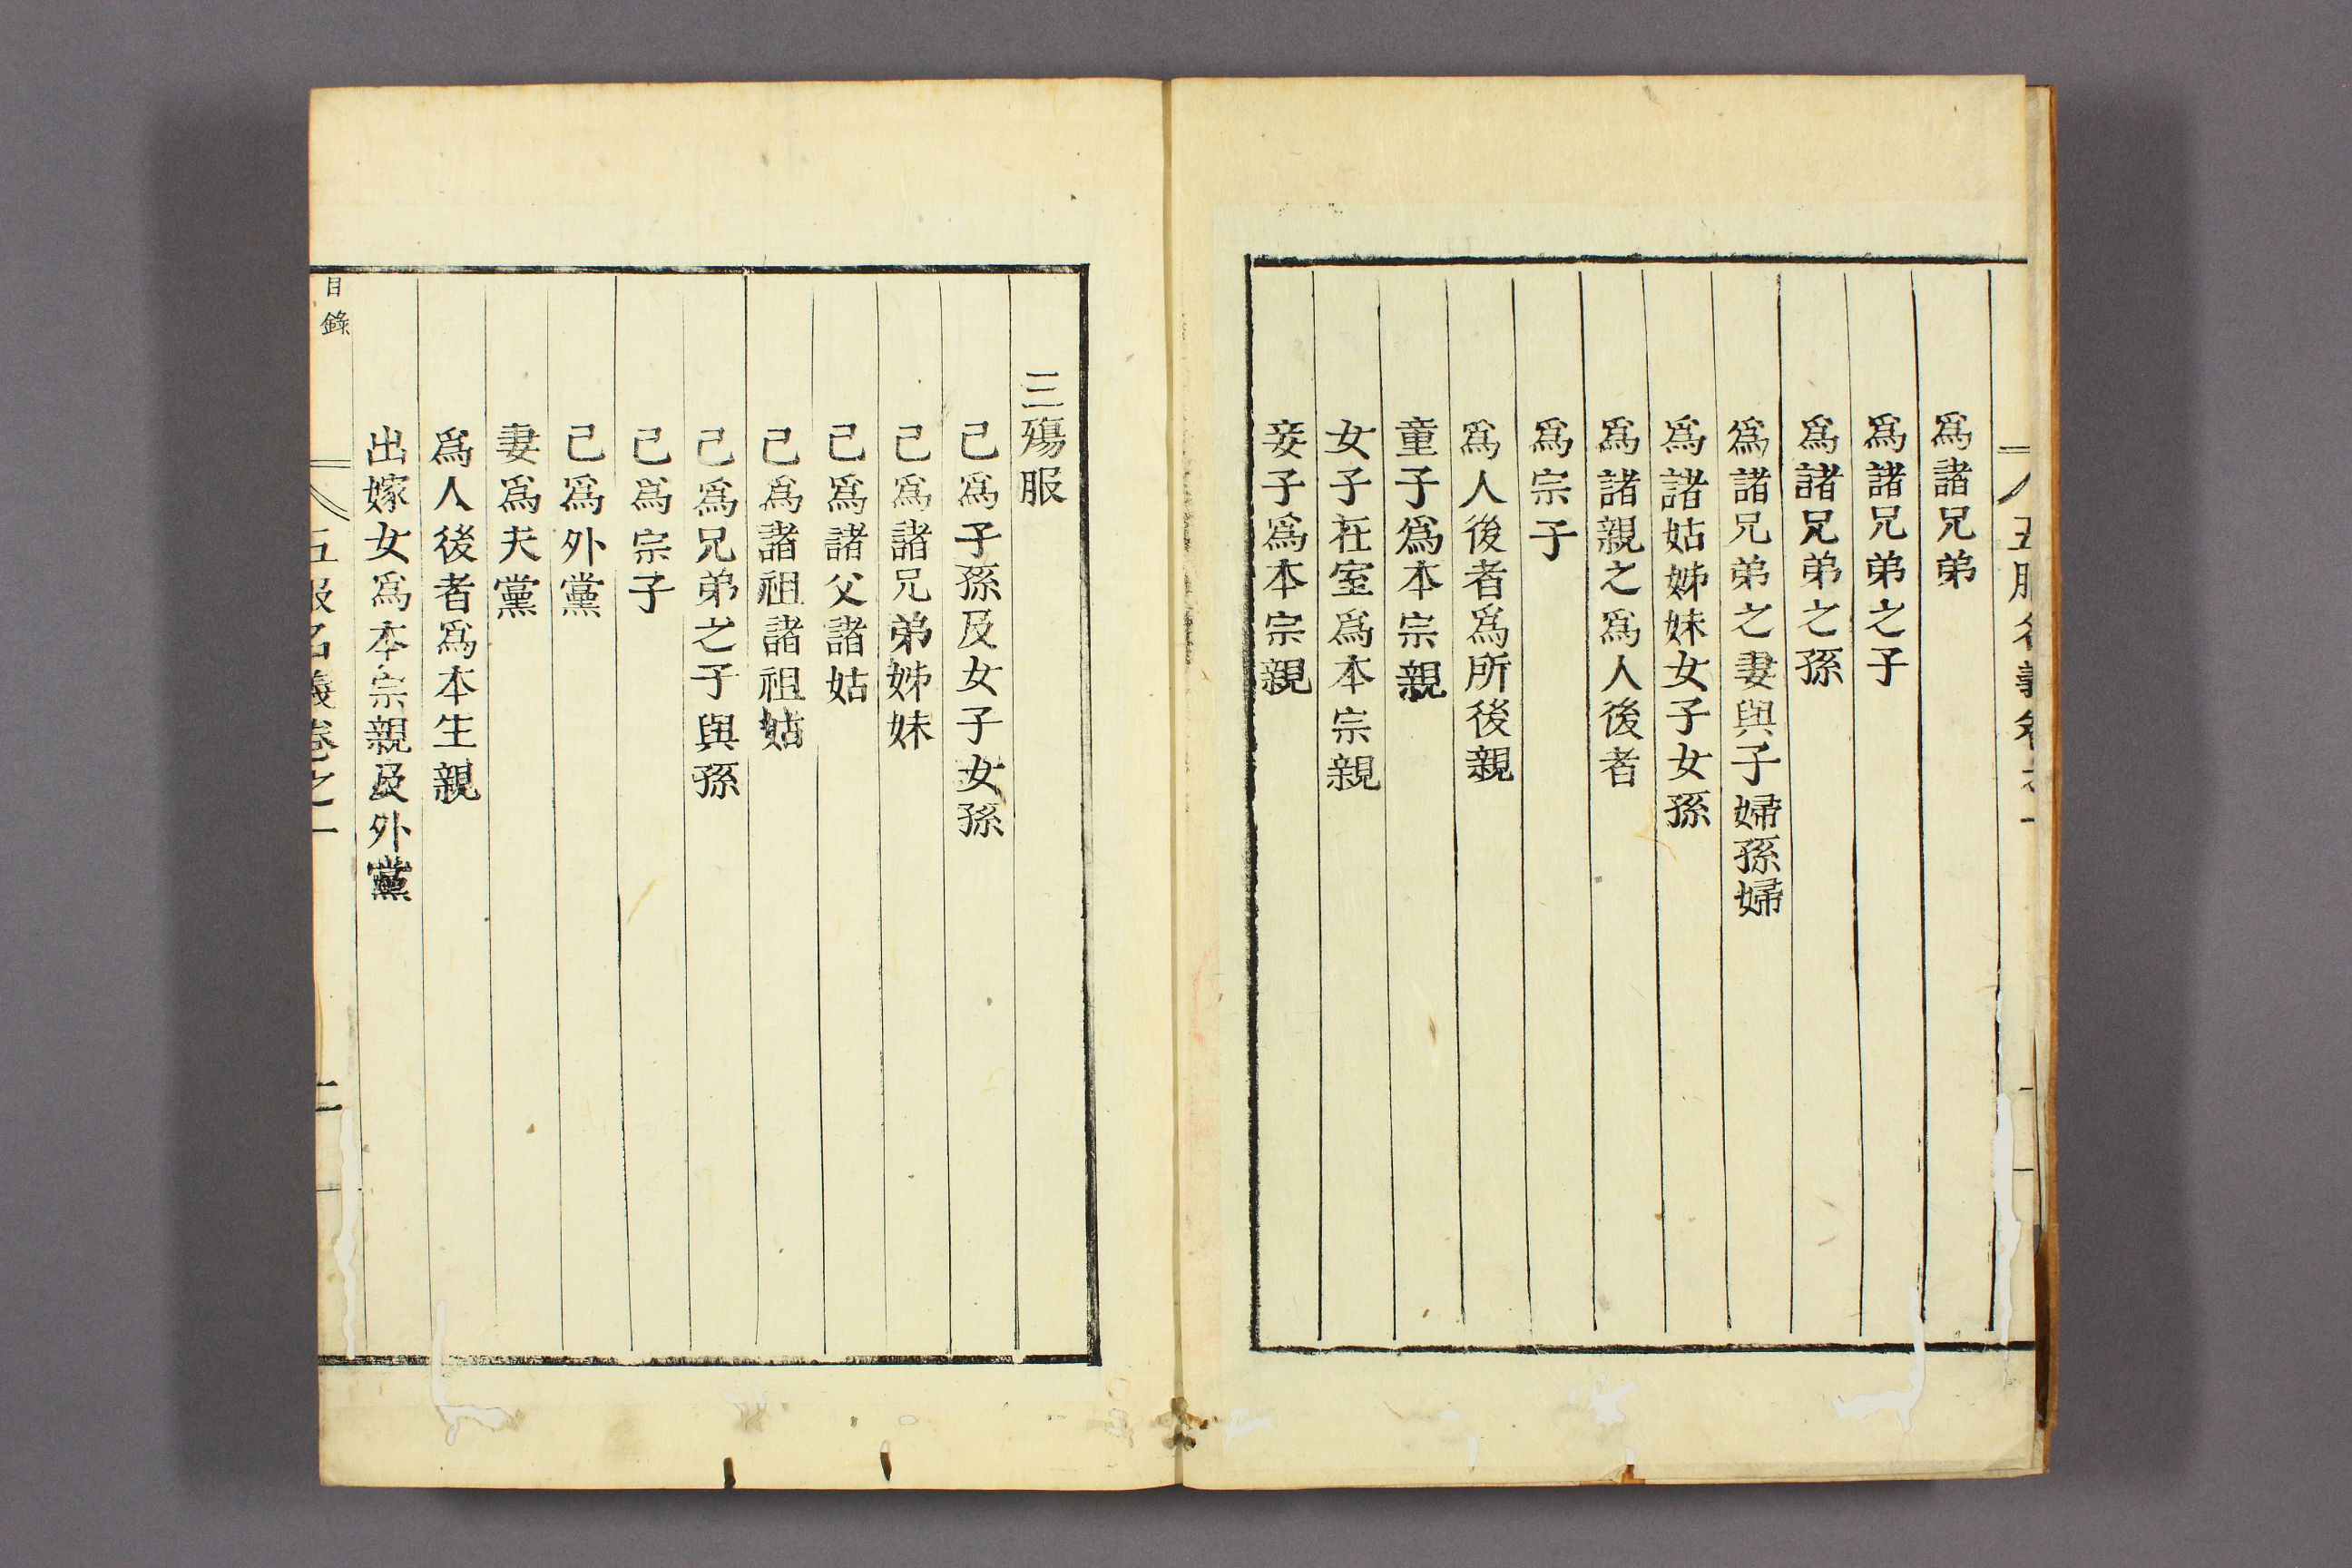 爲諸兄弟
爲諸兄弟之子
爲諸兄弟之孫
爲諸兄弟之妻與子婦孫婦
爲諸姑姊妹女子女孫
爲諸親之爲人後者
爲宗子
爲人後者爲所後親
童子爲本宗親
女子在室爲本宗親
妾子爲本宗親
三殤服
己爲子孫及女子女孫
己爲諸兄弟姊妹
己爲諸父諸姑
己爲諸祖諸祖姑
己爲兄弟之子與孫
己爲宗子
己爲外黨
妻爲夫黨
爲人後者爲本生親
出嫁女爲本宗親及外黨
目錄
五服名義卷之一
二